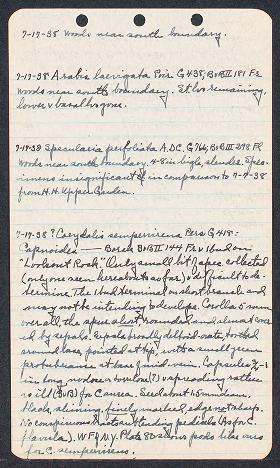 7-17-38 Woods near south boundary.
7-17-38 Arabis laevigata Poir G 438; B&B II 181 Fr
woods near south boundary. St. lvs remaining,
lower & basal lvs gone.
7-17-38 Specularia perfoliata A.DC. G 766; B&B III 298 Fl
Woods near south boundary. 4-8 in high, slender. Spec-
imens insignificant in comparison to 7-7-38
from H.H. Upper Garden.
7-17-38 ? Corydalis sempervirens Pers G 418:
Capnoides — Borck B&B II 144 Fr & 1 bud on
"Lookout Rock." Only small bit (spec collected
(only one seen hereabouts so far) & difficult to de-
termine. The bud terminal on short branch and
may not be intending to develope. Corolla 5 mm
over all, the apex almost rounded and almost cover-
ed by sepals. Sepals broadly deltoid-ovate, toothed
around base, pointed at tip, with a small green
protuberance at base of mid-vein. Capsules
in long, no lower & upreading rather
as ill (B&B) for C. aurea. Seed about 1.5 mm diam.
Black, shining, finely marked, edge not sharp.
No conspicuous bracts subtending pedicels (as for C.
flavula). W.F. of N.Y. Plate 80 shows pods like ours
for C. sempervirens.